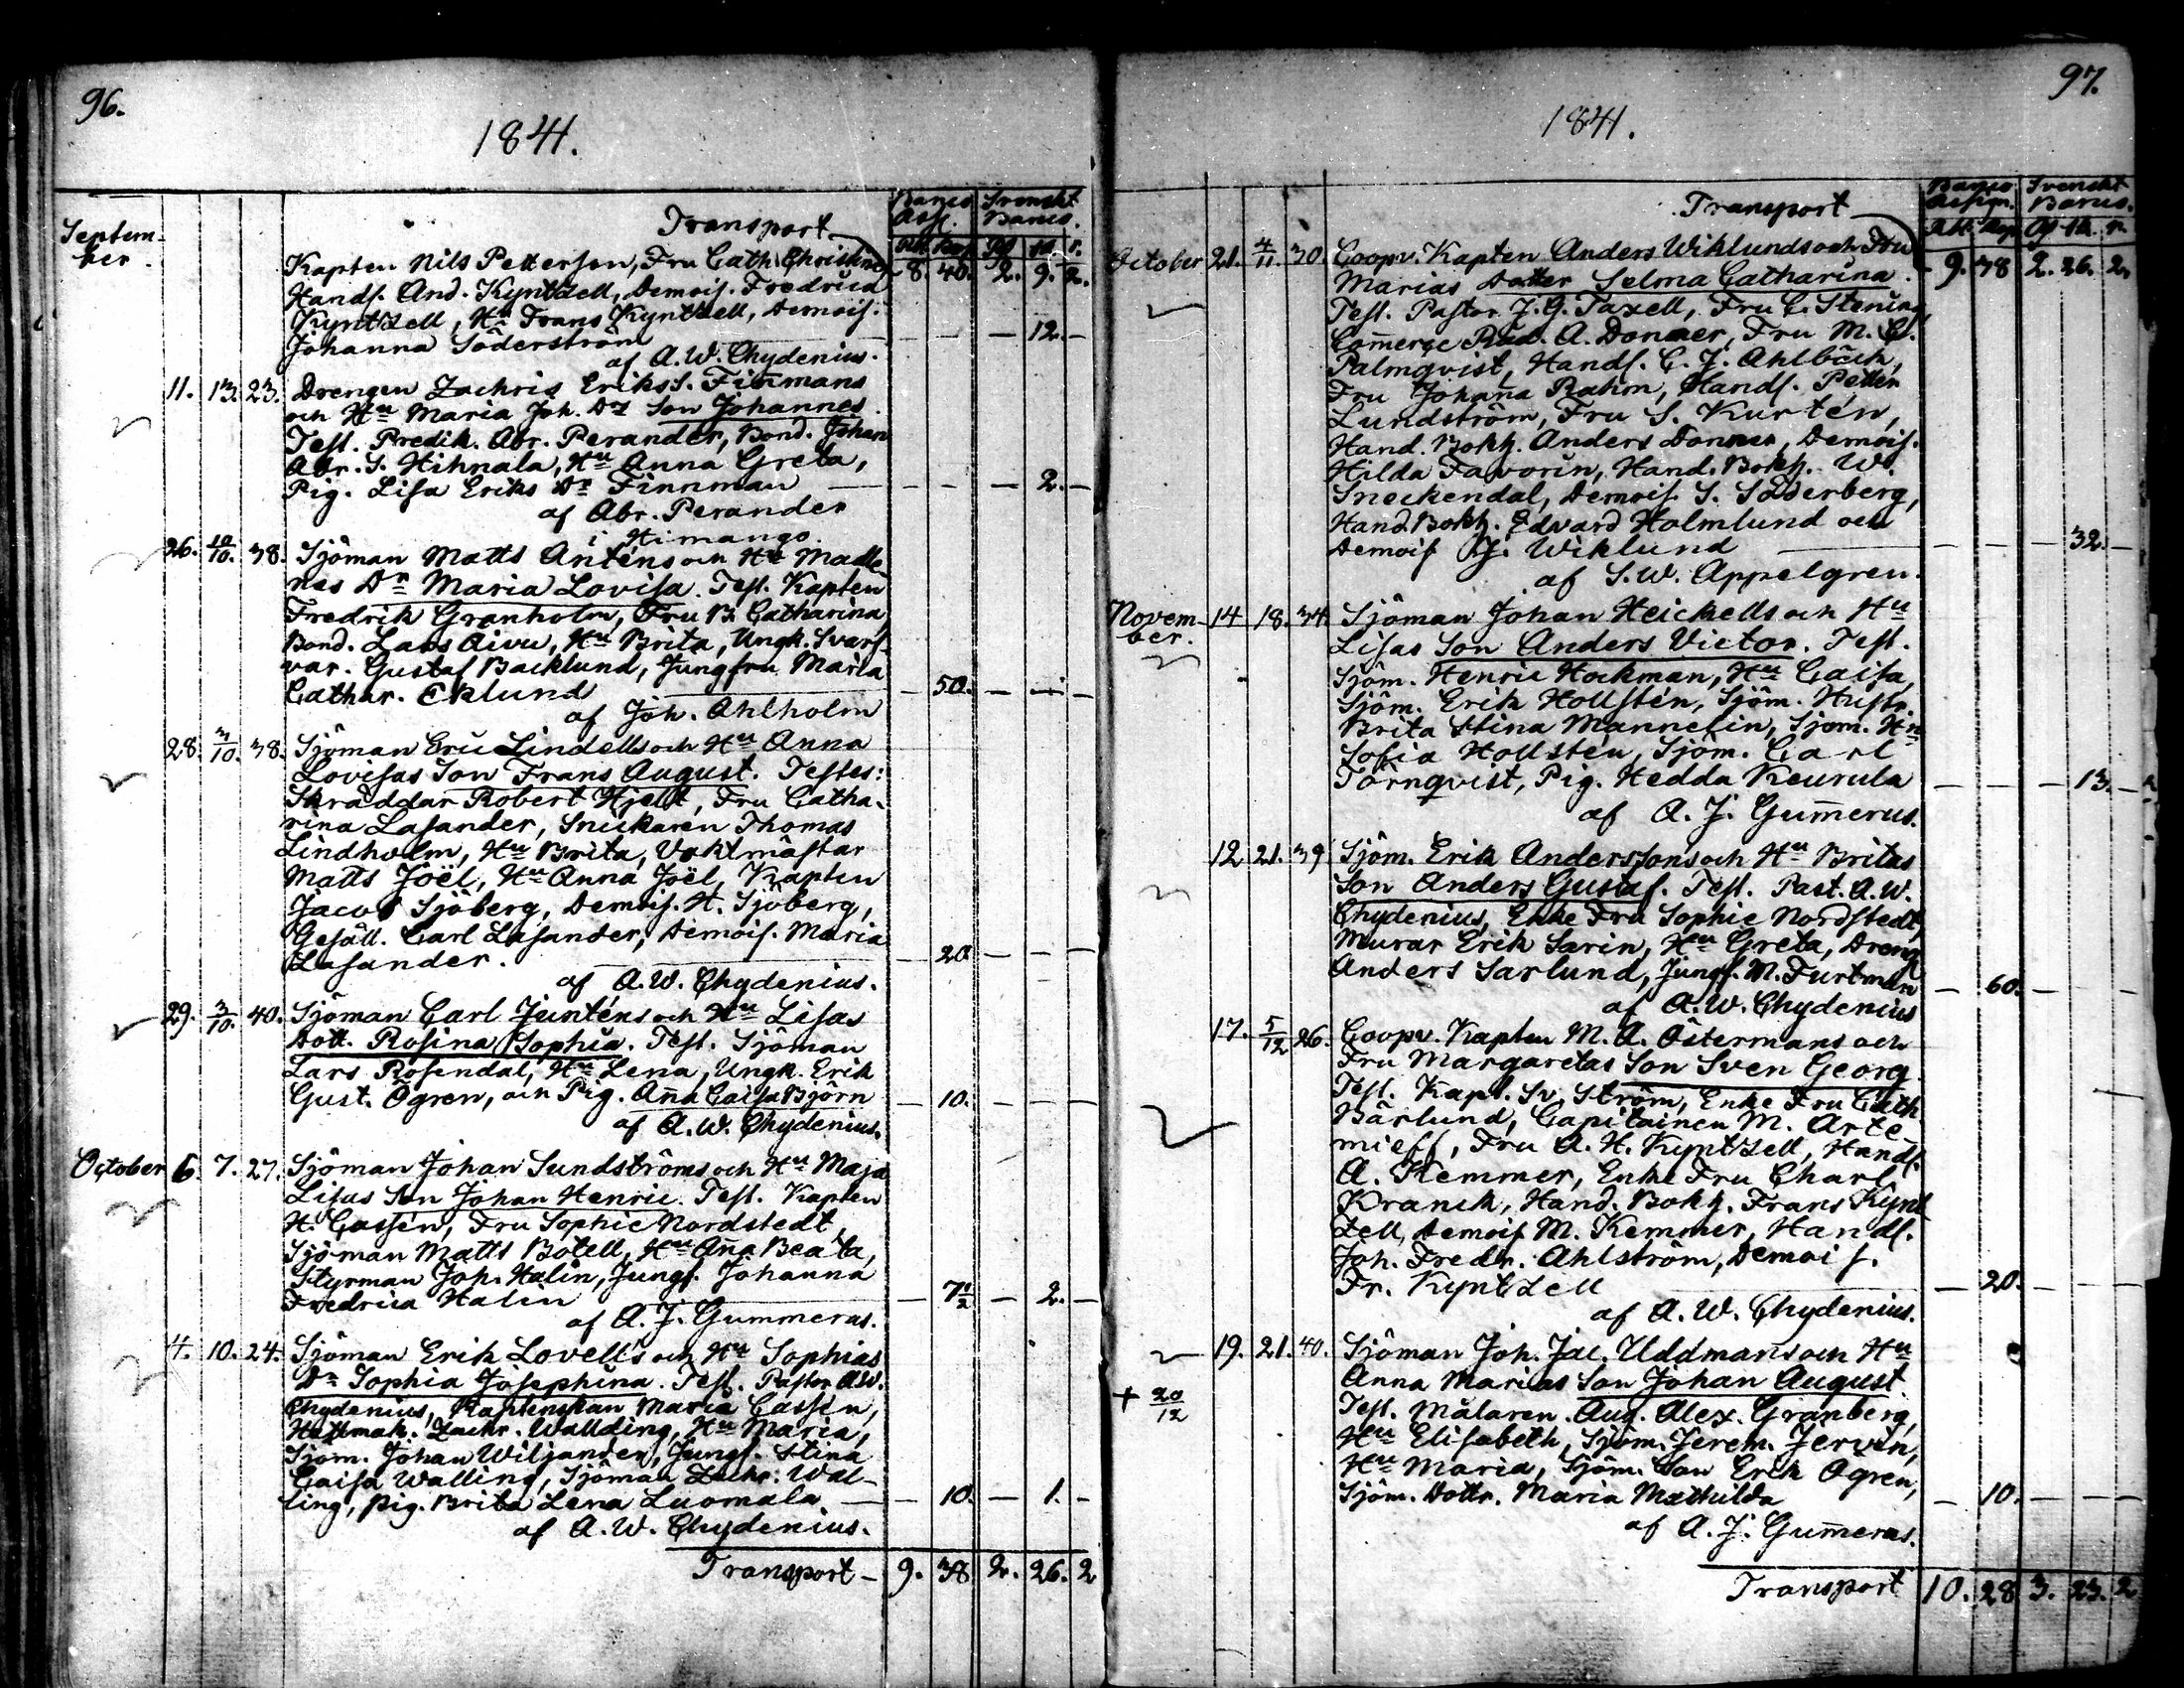 96.
1841.
Septem-
ber.
Banco Ass. Svenskt Banco.
Transport
Kapten Nils Pettersson, Fru Cath. Christine 8. 40. 2. 9. 2.
Hands. And. Kyntzell, Demois. Fredrica
Kyntzell, Hr Frans Kyntzell, Demois.
Johanna Söderström — — — 12. —
af A. W. Chydenius.
11. 13. 23. Drengen Zachris Eriks S. Finnmans
och Hu Maria Joh. Dr Son Johannes.
Test. Predik. Abr. Perander, Bond. Johan
Abr. S. Hihnala, Hu Anna Greta,
Pig. Lisa Eriks Dr Finnman — — — 2. —
af Abr. Perander
i Himango.
26. 10/10. 38. Sjöman Matts Anténs och Hu Madle
nas Dr Maria Lovisa. Test. Kapten
Fredrik Granholm, Fru B. Catharina,
Bond. Lars Aivu, Hu Brita, Ungk. Svarf-
var. Gustaf Backlund, Jungfru Maria
Cathar. Eklund — 50. — — —
af Joh. Ahlholm
28. 3/10. 38. Sjöman Eric Lindells och Hu Anna
Lovisas Son Frans August. Testes:
Skräddar Robert Hjelt, Fru Catha-
rina Lasander, Snickaren Thomas
Lindholm, Hu Brita, Vaktmästar
Matts Joël, Hu Anna Joël, Kapten
Jacob Sjöberg, Demois. H. Sjöberg,
Gesäll. Carl Lasander, Demois. Maria
Lasander. — 20. — — —
af A. W. Chydenius.
29. 3/10. 40. Sjöman Carl Junténs och Hu Lisas
Dott. Rosina Sophia. Test. Sjöman
Lars Rosendal, Hu Lena, Ungk. Erik
Gust. Ögren, och Pig. Anna Caisa Björn — 10. — — —
af A. W. Chydenius.
October 6. 7. 27. Sjöman Johan Sundströms och Hu Maja
Lisas Son Johan Henric. Test. Kapten
H. Cassén, Fru Sophie Nordstedt,
Sjöman Matts Botell, Hu Anna Beata,
Styrman Joh. Halin, Jungf. Johanna
Fredrica Halin — 7 1/2 — 2. —
af A. J. Gummerus.
4. 10. 24. Sjöman Erik Lovell's och Hu Sophias
Dr Sophia Josephina. Test. Pastor A.W.
Chydenius, Kaptenskan Maria Cassén,
Hattmak. Zachr. Wallding, Hu Maria,
Sjöm. Johan Wiljander, Jungf. Stina
Caisa Walling, Sjöman Zachr. Wal-
ling, pig. Brita Lena Luomala. — 10. — 1. —
af A. W. Chydenius.
Transport — 9. 38 2. 26. 2
97.
1841.
Banco Assign. Svenskt Banco.
Transport
October 21. 4/11. 30. Coopv. Kapten Anders Wiklunds och Fru
Marias Dotter Selma Catharina. 9. 38 2. 26. 2.
Test. Pastor J. G. Taxell, Fru C. Stenius,
Commerce Råd. A. Donner, Fru M. C.
Palmqvist, Hands. C. J. Ahlbäck,
Fru Johanna Rahm, Hands. Petter
Lundström, Fru S. Kurtén,
Hand. Bokh. Anders Donner, Demois.
Hilda Favorin, Hand. Bokh. W.
Sneckendal, Demois. S. Söderberg,
Hand. Bokh. Edvard Holmlund och
Demois J. Wiklund — — — 32. —
af S. W. Appelgren.
Novem-
ber. 14 18. 34. Sjöman Johan Heickells och Hu
Lisas Son Anders Victor. Test.
Sjöm. Henric Hockman, Hu Caisa,
Sjöm. Erik Hollstén, Sjöm. Hustr.
Brita Stina Mannelin, Sjöm. Hu
Sofia Hollstén, Sjöm. Carl
Törnqvist, Pig. Hedda Keurula — — — 13. —
af A. J. Gummerus.
12 21. 39 Sjöm. Erik Anderssons och Hu Britas
Son Anders Gustaf. Test. Past. A. W.
Chydenius, Enke Fru Sophie Nordstedt,
Murar Erik Sarin, Hu Greta, Dreng
Anders Sarlund, Jungf. M. Furtman — 60. — — —
af A. W. Chydenius
17. 5/12 26. Coopv. Kapten M. A. Östermans och
Fru Margaretas Son Sven Georg.
Test. Kapt. Sv. Ström, Enke Fru Cath.
Bärlund, Capitainen M. Arte-
mieff, Fru A. H. Kyntzell, Hands.
A. Kemmer, Enke Fru Charl.
Kranck, Hand. Bokh. Frans Kynt
zell, Demois M. Kemmer, Hands.
Joh. Fredr. Ahlström, Demois.
Fr. Kyntzell — 20. — — —
af A. W. Chydenius.
19. 21. 40. Sjöman Joh. Jac. Uddmans och Hu
Anna Marias Son Johan August.
+ 20/12
Test. Målaren Aug. Alex. Granberg,
Hu Elisabeth, Sjöm. Jerem. Jervin,
Hu Maria, Sjöm. Son Erik Ögren,
Sjöm. Dottr. Maria Mathilda — 10. — — —
af A. J. Gummerus.
Transport 10. 28 3. 23. 2